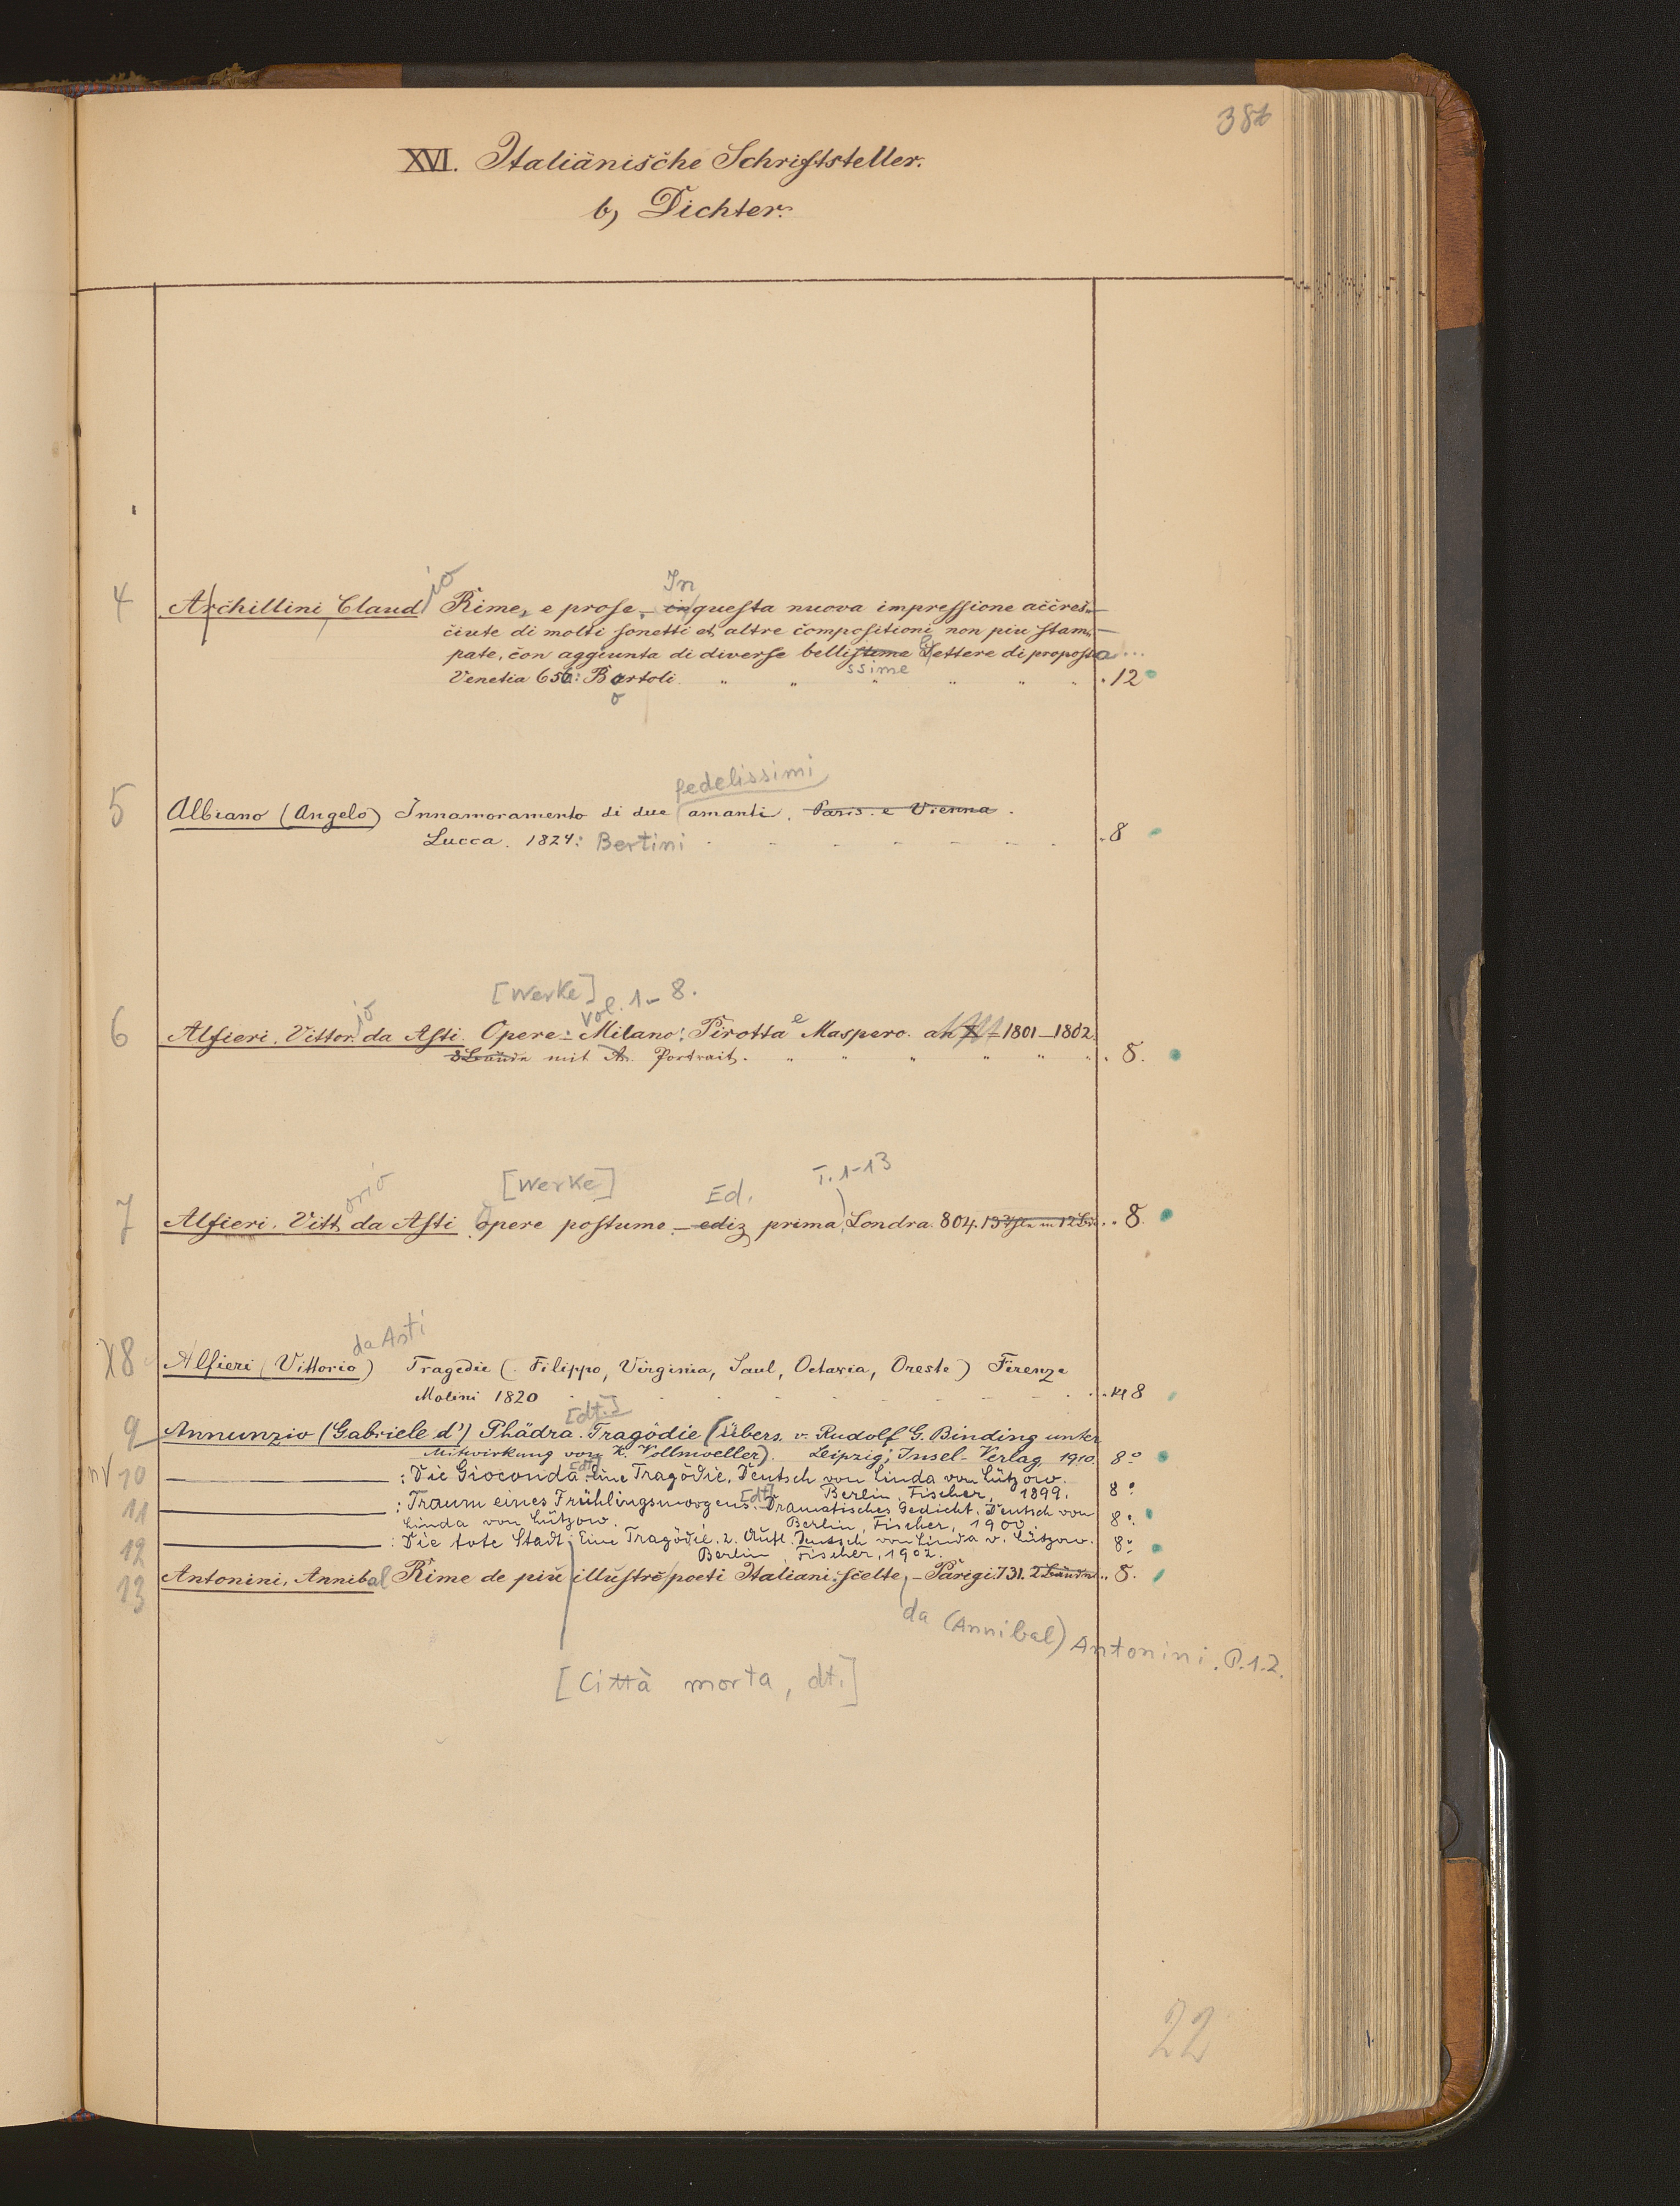 38b
XVI. Italiänische Schriftsteller.
b) Dichter.
io In
4 Archillini Claud Rime, e prose. – in questa nuova impressione accres-
ciute di molti sonetti et altre compositioni non piu stam-
pate, con aggiunta di diverse bellisteme Lettere di proposta ...
ssime
Venetia 656: Bartoli " " " " " " . 12
o
fedelissimi
5 Albiano (Angelo) Innamoramento di due amanti. Paris. e Vienna.
Lucca. 1824: Bertini . - - - - - - . 8
[Werke] Vol. 1-8.
io e
6 Alfieri. Vittor. da Asti. Opere – Milano: Pirotta Maspero. an X – 1801–1802.
8 Bände mit A. Portrait. " " " " " " . 8.
orio [Werke] Ed. T. 1-13
7 Alfieri. Vitt. da Asti opere postume – ediz prima, Londra. 804. 13 in 12 .. 8.
da Asti
X8 Alfieri (Vittorio) Tragedie (Filippo, Virginia, Saul, Octavia, Oreste) Firenze
Molini 1820 - - - - - - - . . kl 8
[dt.]
9 Annunzio (Gabriele d') Phädra. Tragödie (Übers. v. Rudolf G. Binding unter
Mitwirkung von K. Vollmoeller). Leipzig; Insel-Verlag 1910. 8°
[dt.]
nv 10 : Die Gioconda. Eine Tragödie. Deutsch von Linda von Lützow.
Berlin, Fischer, 1899. 8°
[dt.]
11 : Traum eines Frühlingsmorgens. Dramatisches Gedicht. Deutsch von
Linda von Lützow. Berlin, Fischer, 1900. 8°
12 : Die tote Stadt; Eine Tragödie. 2. Aufl. Deutsch von Linda v. Lützow.
Berlin, Fischer, 1902. 8°
13 Antonini, Annibal Rime de piu illustre poeti Italiani scelte, – Parigi. 731. 2 Bände .. 8.
da (Annibal) Antonini. P.1.2.
[Città morta, dt.]
22